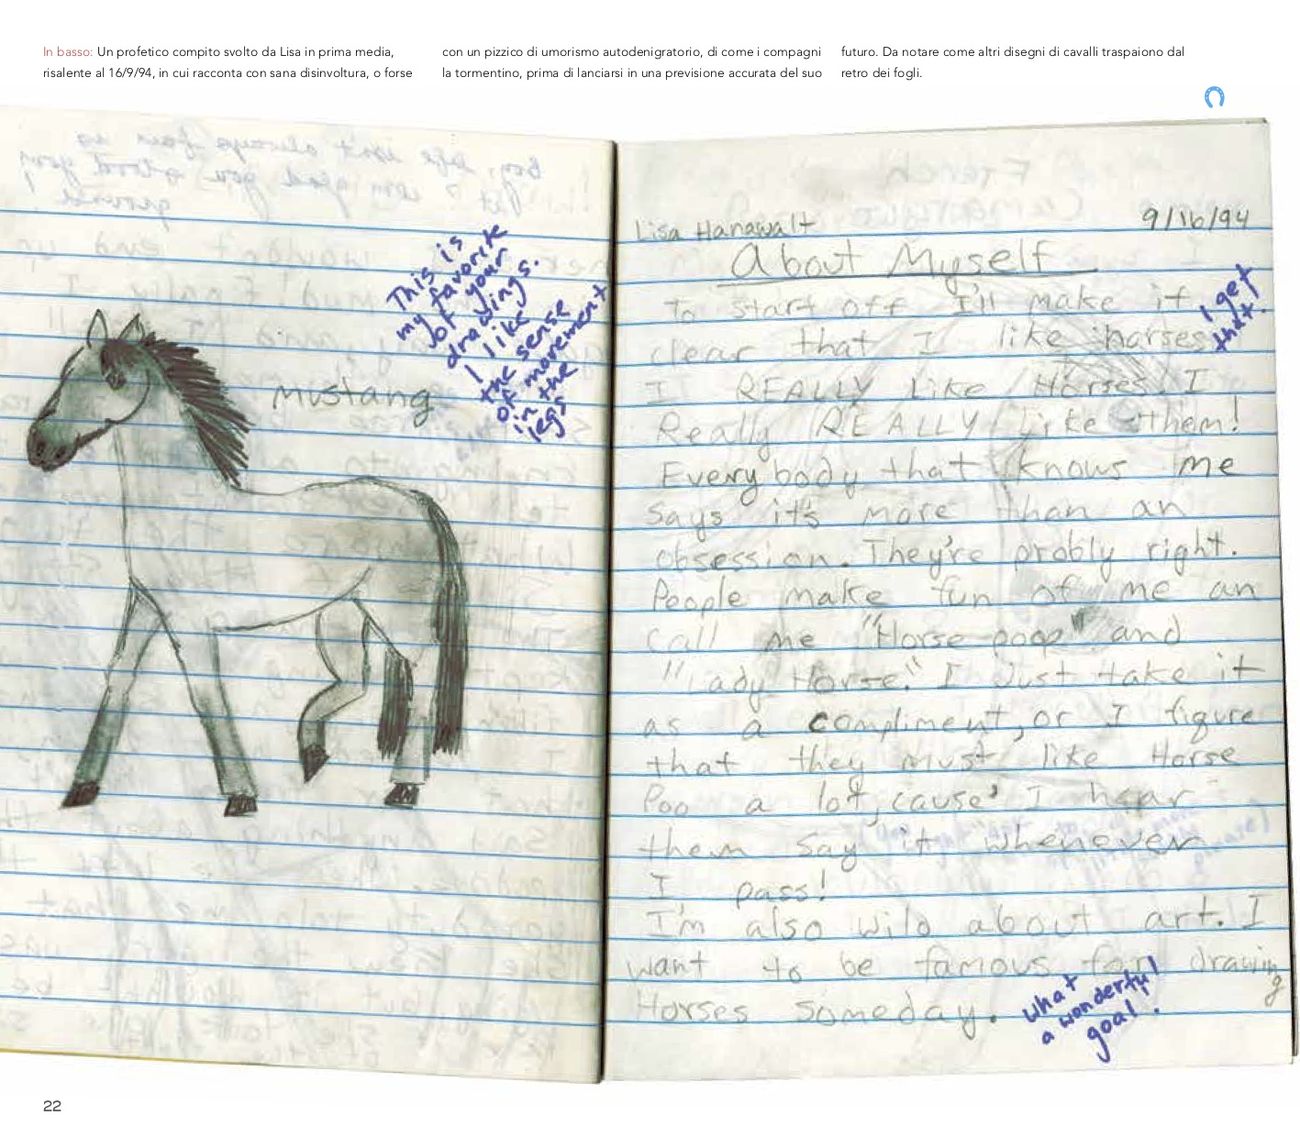 In basso: Un profetico compito svolto da Lisa in prima media,
risalente al 16/9/94, in cui racconta con sana disinvoltura, o forse
con un pizzico di umorismo autodenigratorio, di come i compagni
la tormentino, prima di lanciarsi in una previsione accurata del suo
futuro. Da notare come altri disegni di cavalli traspaiono dal
retro dei fogli.
This is
my favorite
of your
drawings.
I like
the sense
of movement
in the
legs
mustang
Lisa Hanawalt
9/16/94
About Myself
To start off I'll make it
clear that I like horses.
I get
that!
I REALLY Like Horses. I
Really REALLY Like them!
Everybody that knows me
says it's more than an
obsession. They're probly right.
People make fun of me an
call me "Horse poop" and
"Lady Horse." I just take it
as a compliment, or I figure
that they must like Horse
Poo a lot, cause' I hear
them say it whenever
I pass!
I'm also wild about art. I
want to be famous for drawing
Horses someday.
what
a wonderful
goal!
22